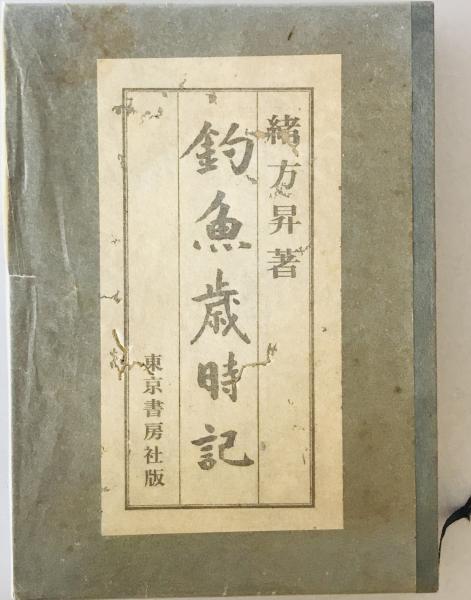 緒方昇著
釣魚歳時記
東京書房社版